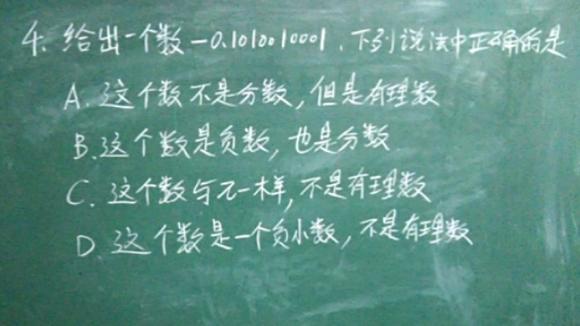 4. 给出一个数-0.1010010001,下列说法中正确的是
A. 这个数不是分数,但是有理数
B. 这个数是负数,也是分数
C. 这个数与π一样,不是有理数
D. 这个数是一个负小数,不是有理数